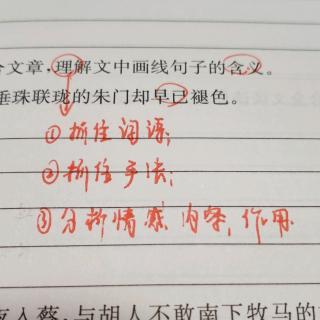 合文章,理解文中画线句子的含义。
垂珠联珑的朱门却早已褪色。
①抓住词语;
②抓住手法;
③分析情感、内容,作用
入蔡,与胡人不敢南下牧马的